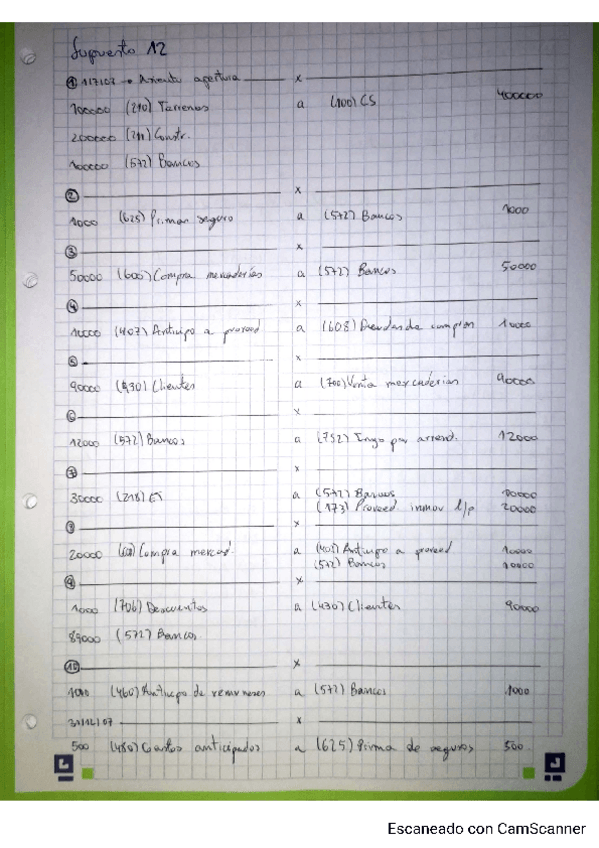 Supuesto 12
① 1/7/07 → Asiento apertura x
100000 (210) Terrenos a (100) CS 400000
200000 (211) Constr.
100000 (572) Bancos
② x
1000 (625) Primas seguro a (572) Bancos 1000
③ x
50000 (600) Compra mercaderías a (572) Bancos 50000
④ x
10000 (407) Anticipo a proveed a (608) 10000
⑤ x
90000 (430) Clientes a (700) Venta mercaderías 90000
⑥ x
12000 (572) Bancos a (752) Ingr por arrend. 12000
⑦ x
30000 (218) ET a (572) Bancos 10000
(173) Proveed inmov l/p 20000
x
20000 Compra mercad. a Anticipo a proveed 10000
(572) Bancos 10000
⑨ x
1000 (706) Descuentos a (430) Clientes 90000
89000 (572) Bancos
⑩ x
1000 (460) Anticipo de a (572) Bancos 1000
31/12/07 x
500 (480) Gastos anticipados a (625) Prima de seguros 500
Escaneado con CamScanner